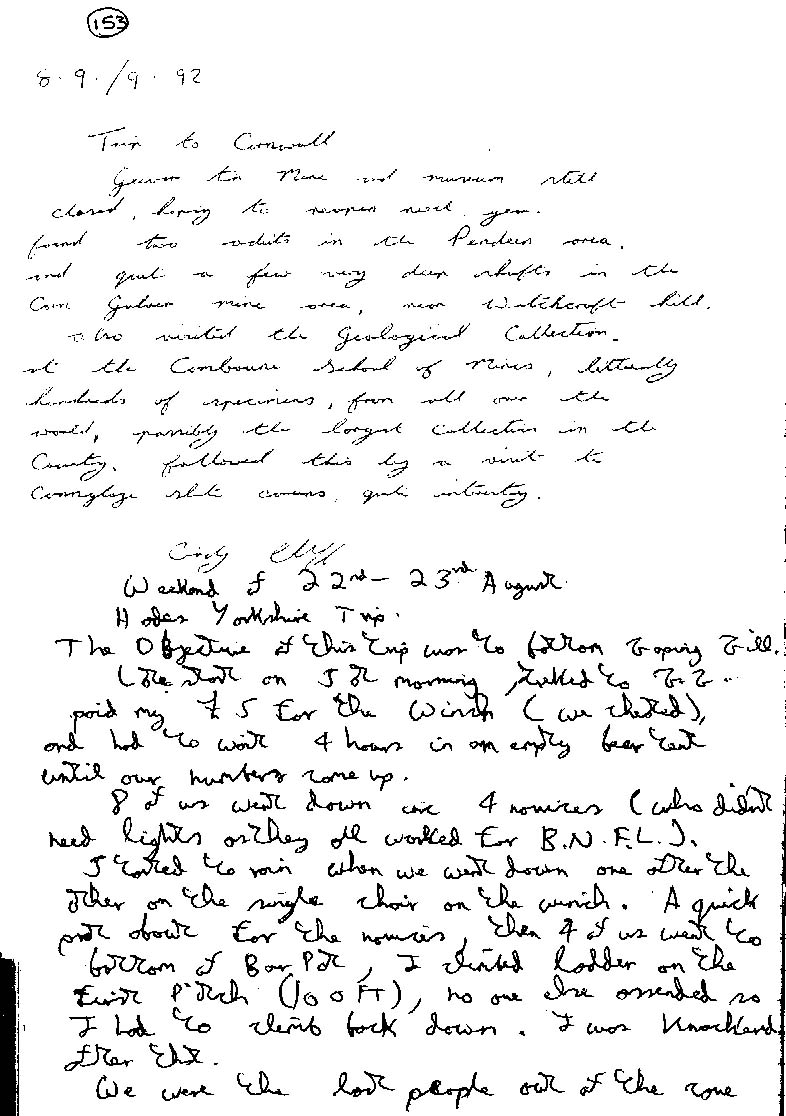 153
8.9./9.92
Trip to Cornwall
Geevor tin Mine and museum still
closed, hoping to reopen next year.
found two adits in the Pendeen area.
and quite a few very deep shafts in the
Carn Galver mine area, near Watchcroft hill.
also visited the Geological Collection.
at the Cambourne School of Mines, litterally
hundreds of specimens, from all over the
world, possibly the largest collection in the
County. followed this by a visit to
Carnglaze slate caverns, quite intresting.
Cliff
Weekend of 22nd - 23rd August.
Yorkshire Trip.
The Objective of this trip was to bottom Gaping Gill.
start on Sat morning, walked to G.G.
paid my £5 for the Winch (we cheated),
and had to wait 4 hours in an empty beer tent
until our numbers come up.
8 of us went down inc 4 novices (who didn't
need lights as they all worked for B.N.F.L.).
Started to rain when we went down one after the
other on the single chair on the winch. A quick
poot about for the novices, then 4 of us went to
bottom of Bar Pot, I climbed ladder on the
First Pitch (100FT), no one else assended so
I had to climb back down. I was Knackerd
after that.
We were the last people out of the cave